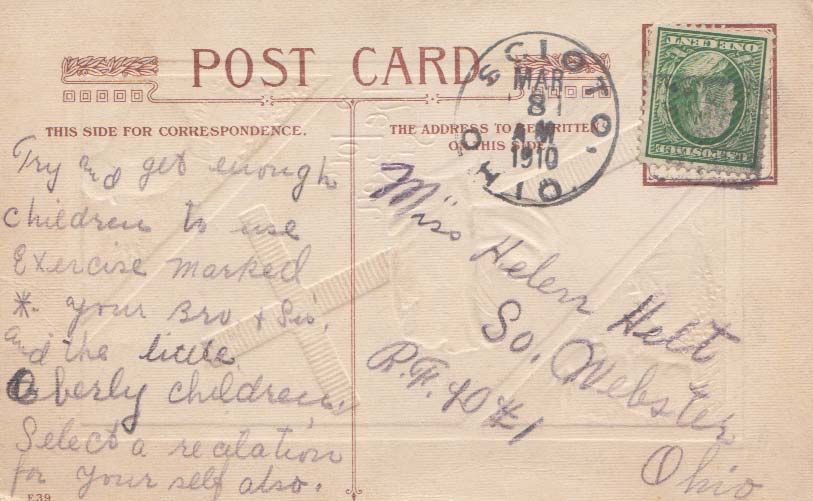 POST CARD
SCIOTO,
MAR
8
A M
1910
OHIO.
ONE CENT
U.S. POSTAGE
THIS SIDE FOR CORRESPONDENCE.
THE ADDRESS TO BE WRITTEN
ON THIS SIDE
Try and get enough
children to use
Exercise marked
*. your Bro + Sis,
and the little
Oberly children,
Select a recitation
for your self also.
Miss Helen Helt
So. Webster
R.F.D #1
Ohio
E39